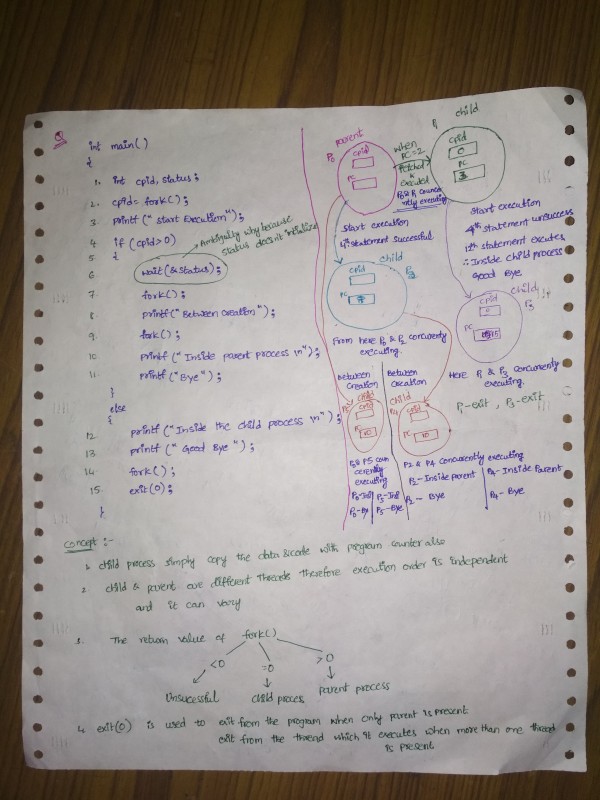 int main()
{
1. int cpid, status;
2. cpid = fork();
3 printf(" start Execution");
4 if (cpid>0)
5 {
6 wait(&status);
Ambiguity why because
status doesn't initialize
7 fork();
8. printf("Between creation");
9. fork();
10. printf("Inside parent process \n");
11. printf("Bye");
}
else
{
12 printf("Inside the child process \n");
13 printf("Good Bye");
14 fork();
15. exit(0);
}
P0 parent
cpid
PC
when
PC=2
Fetched
&
executed
P0 & P1 concurrently executing
P1 child
cpid
0
PC
3
Start execution
4th statement successful
child
cpid
P2
PC
From here P0 & P2 concurrently
executing.
Start execution
4th statement unsuccess
12th statement excutes
∴ Inside child process
Good Bye
child
cpid
0
P3
PC
Here P1 & P3 concurrently
executing.
P1-exit, P3-exit
Between
Creation
child
cpid
P5
PC
10
P0 & P5 concurrently
executing
P0-Bye
P5-Bye
Between
Creation
child
P4
cpid
PC
10
P2 & P4 concurrently executing
P2-Inside parent
P2 - Bye
P4-Inside Parent
P4-Bye
Concept :-
1. child process simply copy the data & code with program counter also
2 child & parent are different threads therefore execution order is independent
and it can vary
3. The return value of fork()
<0 =0 >0
Unsucessful Child proces parent process
4. exit(0) is used to exit from the program when only parent is present
exit from the thread which it executes when more than one thread
is present